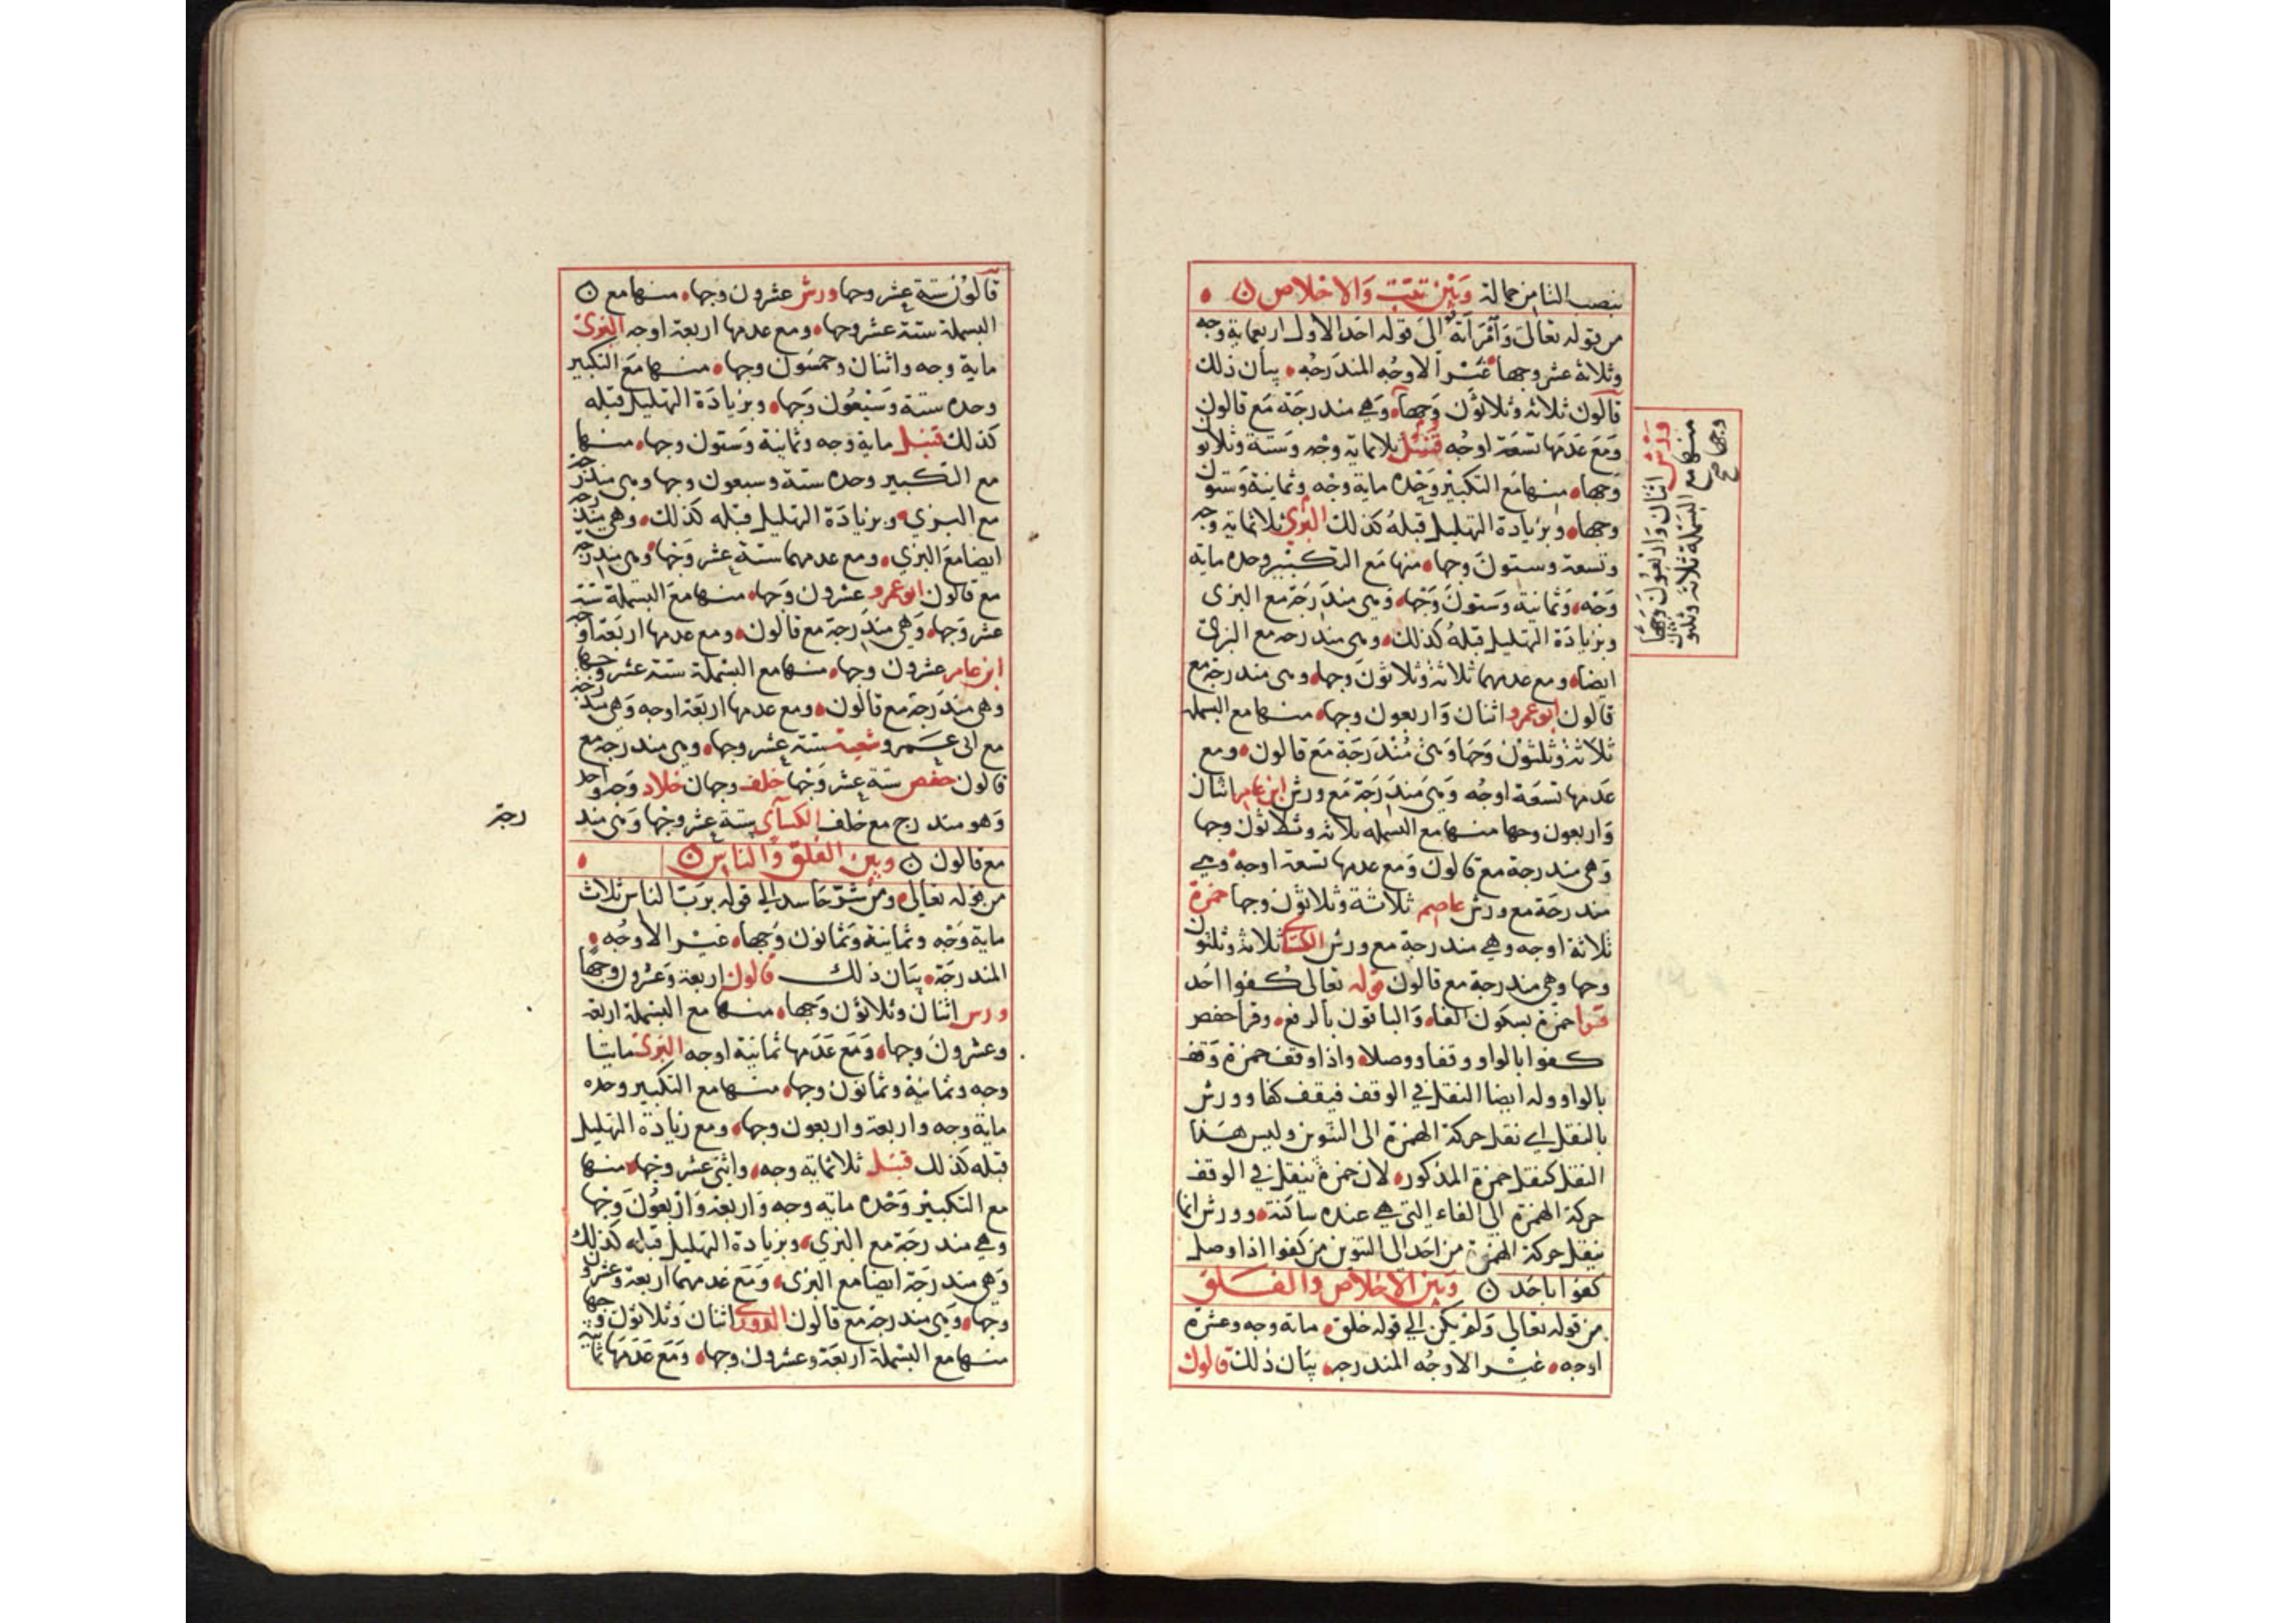 بنصب التا من حمالة وبين تبت والاخلاص
من قوله تعالى وامراته الى قوله احد الاول اربعماية وجه
وثلاثة عشر وجها غير الاوجه المندرجه بيان ذلك
قالون ثلاثة وثلاثون وجها وهي مندرجة مع قالون
ومع عدمها تسعة اوجه قنبل ثلاثماية وجه وستة وثلاثون
وجها منها مع التكبير وحده ماية وجه وثمانية وستون
وجها وبزيادة التهليل قبله كذلك البزي ثلاثماية وجه
وتسعة وستون وجها منها مع التكبير وحده ماية
وجه وثمانية وستون وجها وهي مندرجة مع البزى
وبزيادة التهليل قبله كذلك وهى مندرجه مع البزى
ايضا ومع عدمهما ثلاثة وثلاثون وجها وهى مندرجة مع
قالون ابو عمرو اثنان واربعون وجها منها مع البسملة
ثلاثة وثلثون وجها وهى مندرجة مع قالون ومع
عدمها تسعة اوجه وهى مندرجة مع ورش ابن عامر اثنان
واربعون وجها منها مع البسمله ثلاثه وثلاثون وجها
وهى مندرجة مع قالون ومع عدمها تسعة اوجه وهي
مندرجة مع ورش عاصم ثلاثة وثلاثون وجها حمزة
ثلاثة اوجه وهي مندرجة مع ورش الكسائي ثلاثة وثلثون
وجها وهى مندرجة مع قالون قوله تعالى كفوا احد
قرا حمزة بسكون الفاء والباقون بالرفع وقرا حفص
كفوا بالواو وقفا ووصلا واذا وقف حمزة وقف
بالواو وله ايضا النقل في الوقف فيقف كفا وورش
بالنقل اي نقل حركة الهمزة الى التنوين وليس هذا
النقل كنقل حمزة المذكور لان حمزة ينقل في الوقف
حركة الهمزة الى الفاء التي هي عنده ساكنة وورش انما
ينقل حركة الهمزة من احد الى التنوين من كفوا اذا وصل
كفوا باحد وبين الاخلاص والفلق
من قوله تعالى ولم يكن الي قوله خلق ماية وجه وعشرة
اوجه غير الاوجه المندرجه بيان ذلك قالون
ورش اثنان واربعون وجها
منها مع البسملة ثلاثة وثلثون
وجها صح
قالون ستة عشر وجها ورش عشرون وجها منها مع
البسملة ستة عشر وجها ومع عدمها اربعة اوجه البزى
ماية وجه واثنان وخمسون وجها منها مع التكبير
وحده ستة وسبعون وجها وبزيادة التهليل قبله
كذلك قنبل ماية وجه وثمانية وستون وجها منها
مع التكبير وحده ستة وسبعون وجها وهى مندرجة
مع البزي وبزيادة التهليل قبله كذلك وهي مندرجة
ايضا مع البزي ومع عدمهما ستة عشر وجها وهى مندرجة
مع قالون ابو عمرو عشرون وجها منها مع البسملة ستة
عشر وجها وهي مندرجة مع قالون ومع عدمها اربعة اوجه
ابن عامر عشرون وجها منها مع البسملة ستة عشر وجها
وهى مندرجة مع قالون ومع عدمها اربعة اوجه وهى مندرجة
مع ابى عمرو شعبة ستة عشر وجها وهى مندرجة مع
قالون حفص ستة عشر وجها خلف وجهان خلاد وجه واحد
وهو مندرج مع خلف الكسآى ستة عشر وجها وهى مند
رجة
مع قالون وبين الفلق والناس
من قوله تعالى ومن شر حاسد الي قوله برب الناس ثلاث
ماية وجه وثمانية وثمانون وجها غير الاوجه
المندرجة بيان ذلك قالون اربعة وعشرون وجها
ورس اثنان وثلاثون وجها منها مع البسملة اربعة
وعشرون وجها ومع عدمها ثمانية اوجه البزى مايتا
وجه وثمانية وثمانون وجها منها مع التكبير وحده
ماية وجه واربعة واربعون وجها ومع زيادة التهليل
قبله كذلك قنبل ثلاثماية وجه واثنى عشر وجها منها
مع التكبير وحده مايه وجه واربعة واربعون وجها
وهي مندرجة مع البزي وبزيادة التهليل قبله كذلك
وهي مندرجة ايضا مع البزى ومع عدمهما اربعة وعشرون
وجها وهى مندرجة مع قالون الدورى اثنان وثلاثون وجها
منها مع البسملة اربعة وعشرون وجها ومع عدمها ثمانية